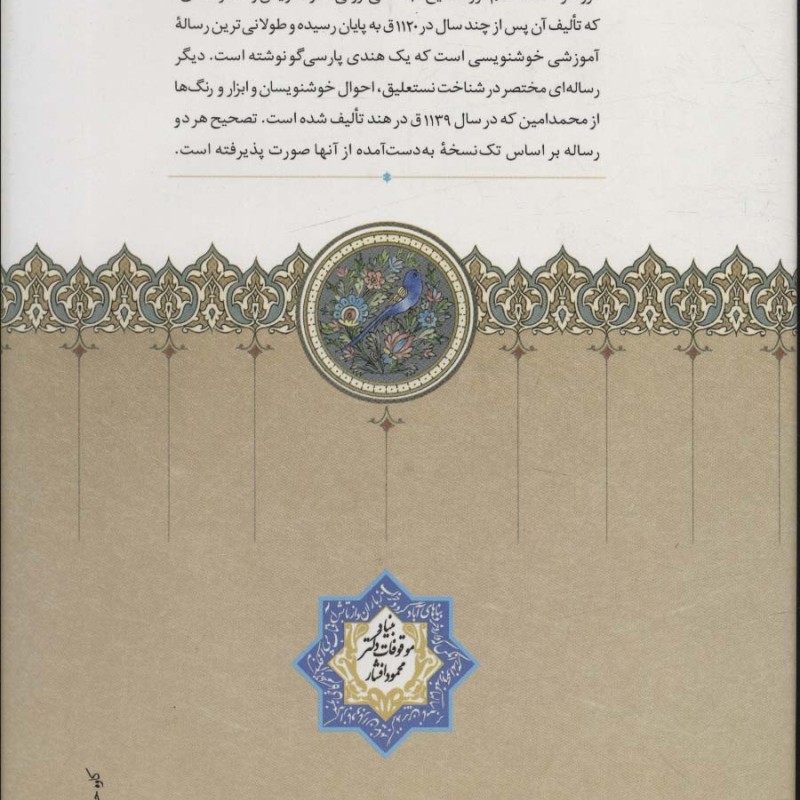 که تألیف آن پس از چند سال در ۱۱۲۰ق به پایان رسیده و طولانی‌ترین رسالهٔ
آموزشی خوشنویسی است که یک هندی پارسی‌گو نوشته است. دیگر
رساله‌ای مختصر در شناخت نستعلیق، احوال خوشنویسان و ابزار و رنگ‌ها
از محمدامین که در سال ۱۱۳۹ ق در هند تألیف شده است. تصحیح هر دو
رساله بر اساس تک‌نسخهٔ به‌دست‌آمده از آنها صورت پذیرفته است.
بنیاد
موقوفات دکتر
محمود افشار